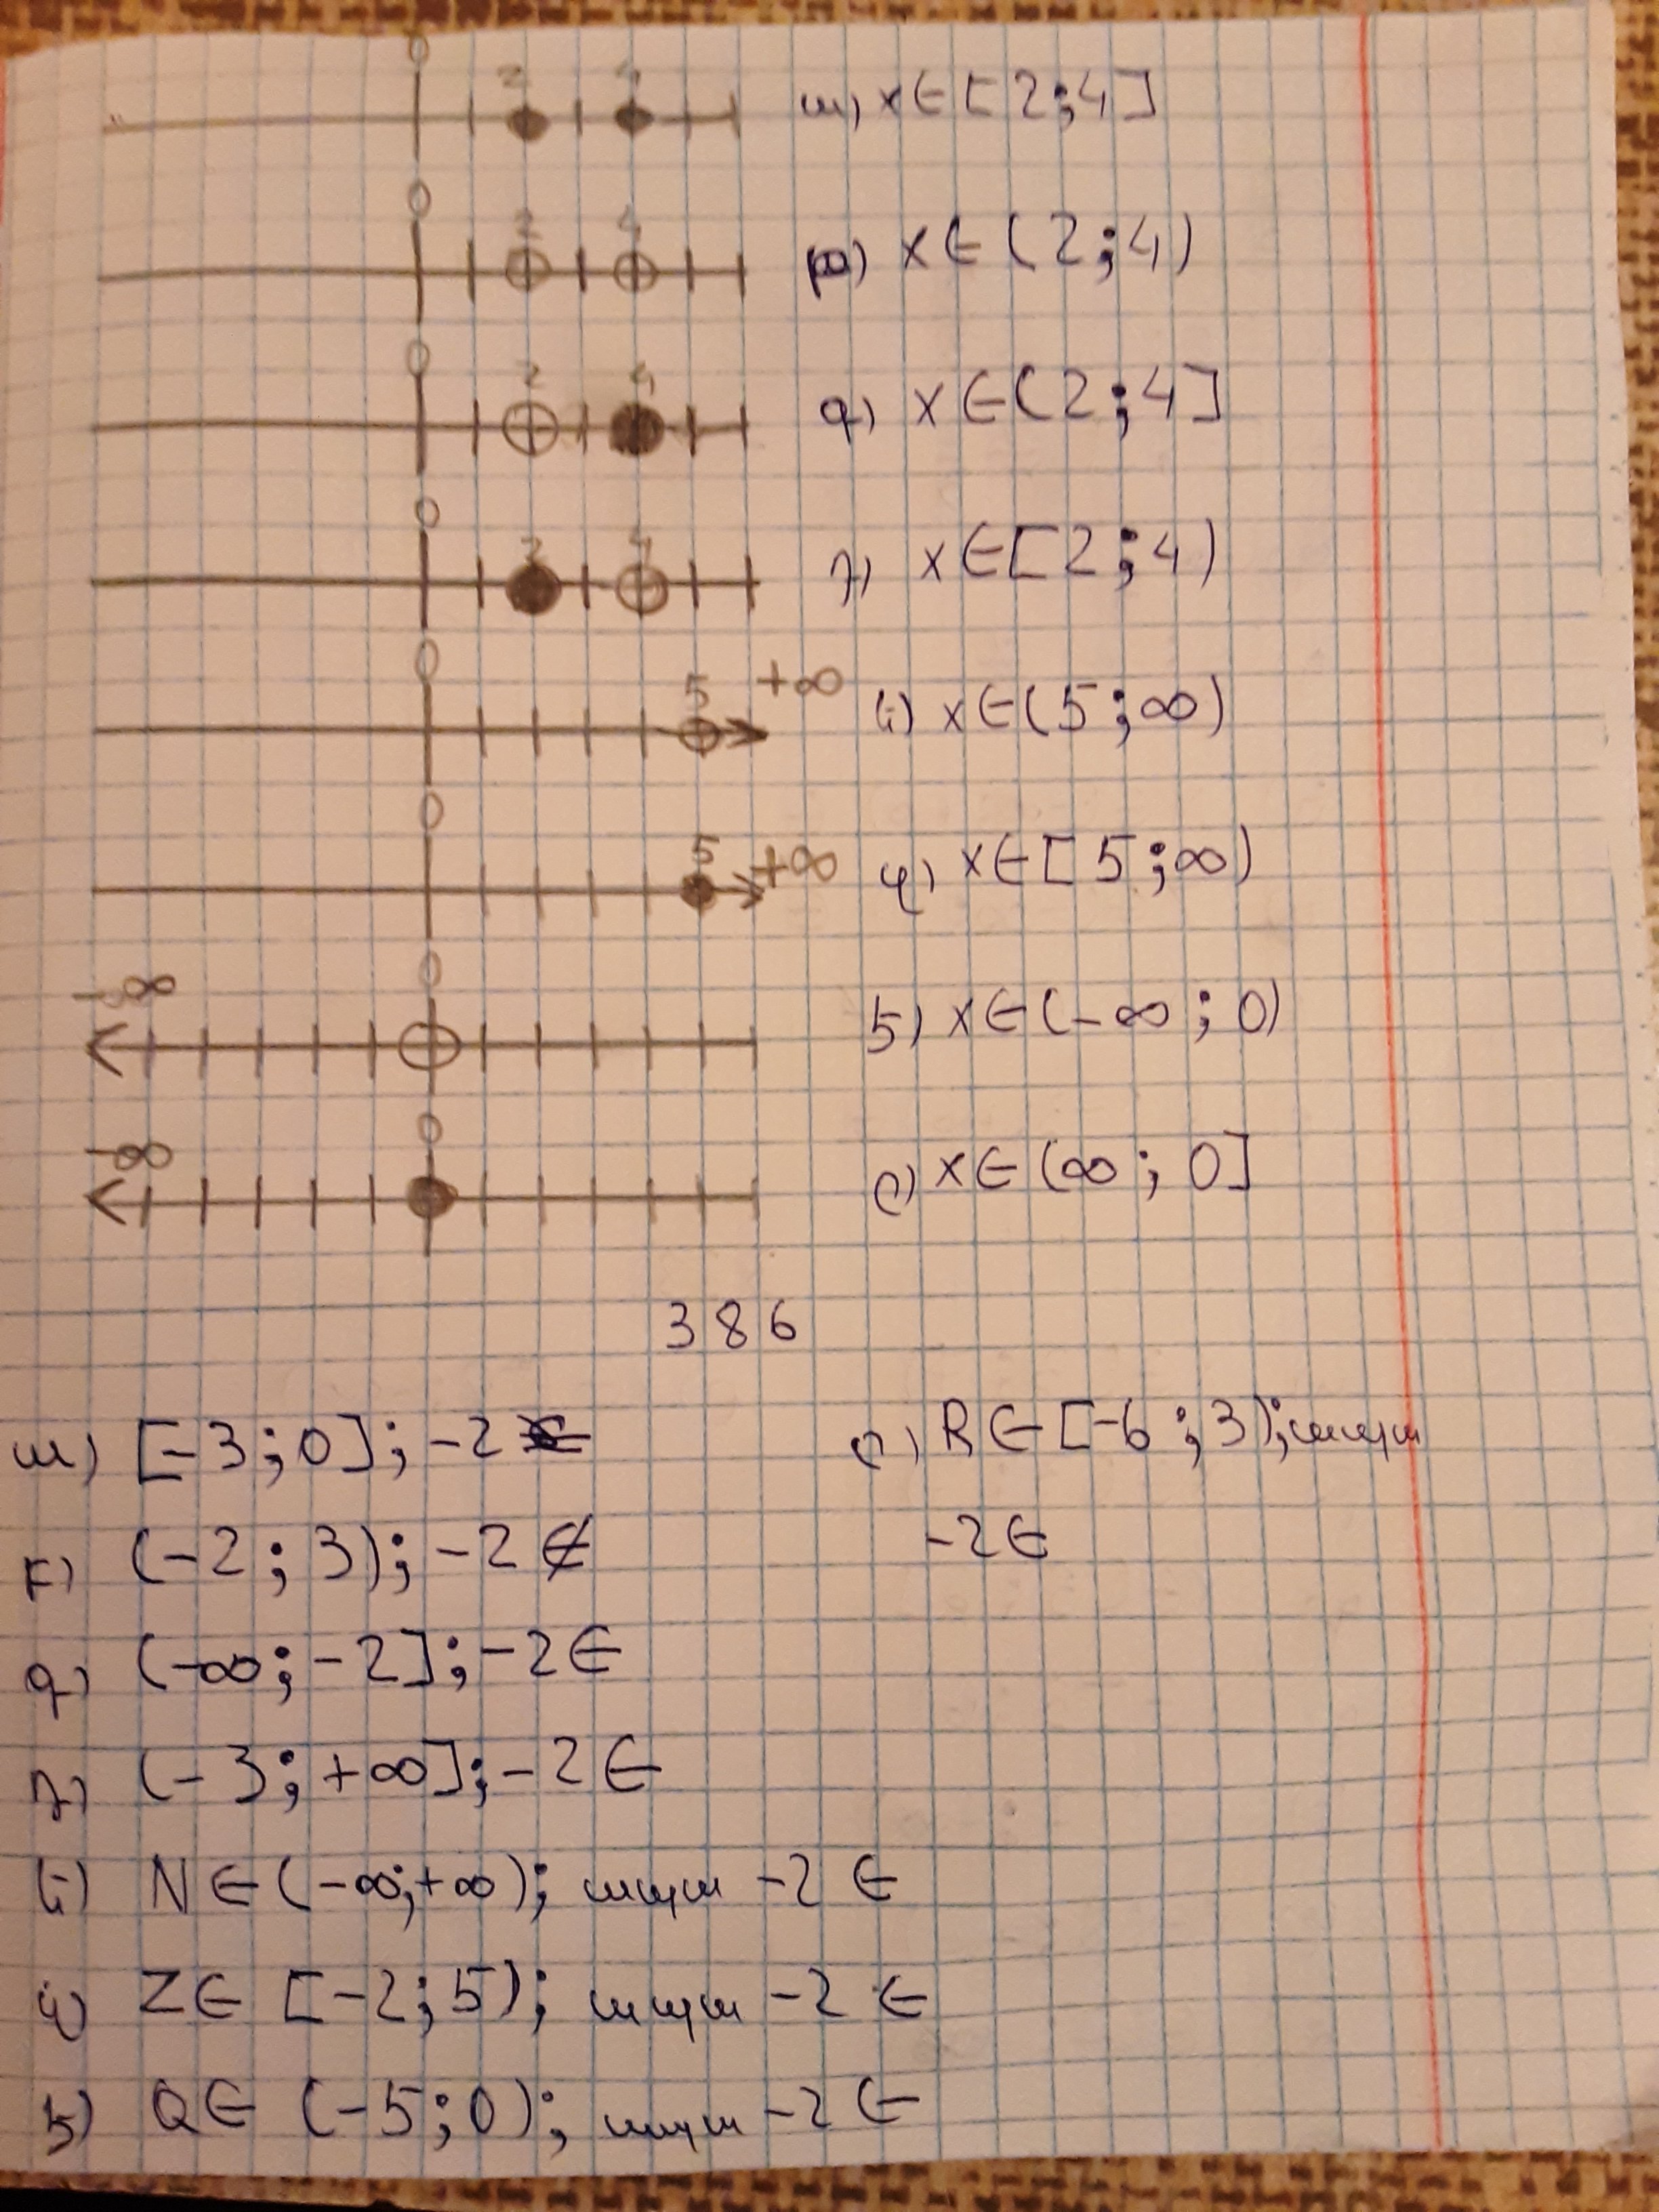 0 2 4 ա) x∈[2;4]
0 2 4 բ) x∈(2;4)
0 2 4 գ) x∈(2;4]
0 2 4 դ) x∈[2;4)
0 5 +∞ ե) x∈(5;∞)
0 5 +∞ զ) x∈[5;∞)
-∞ 0 է) x∈(-∞;0)
-∞ 0 ը) x∈(∞;0]
386
ա) [-3;0];-2
բ) (-2;3);-2∉
գ) (-∞;-2];-2∈
դ) (-3;+∞];-2∈
ե) N∈(-∞;+∞); -2∈
զ) Z∈ [-2;5); -2∈
է) Q∈ (-5;0); -2∈
ը) R∈[-6;3);
-2∈